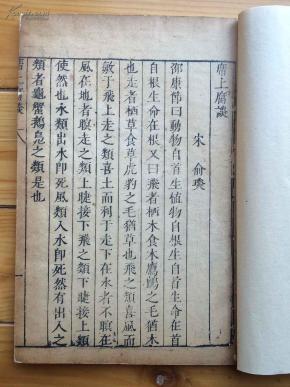 席上腐談
宋 俞琰
邵康節曰動物自首生植物自根生自首生命在首
自根生命在根又曰飛者棲木食木鷹鸇之毛猶木
也走者棲草食草虎豹之毛猶草也飛之類喜風而
敏于飛上走之類喜土而利于走下在水者不瞑在
風在地者瞑走之類上睫接下飛之類下睫接上類
使然也水類出水即死風類入水即死然有出入之
類者龜蟹鵝鳧之類是也